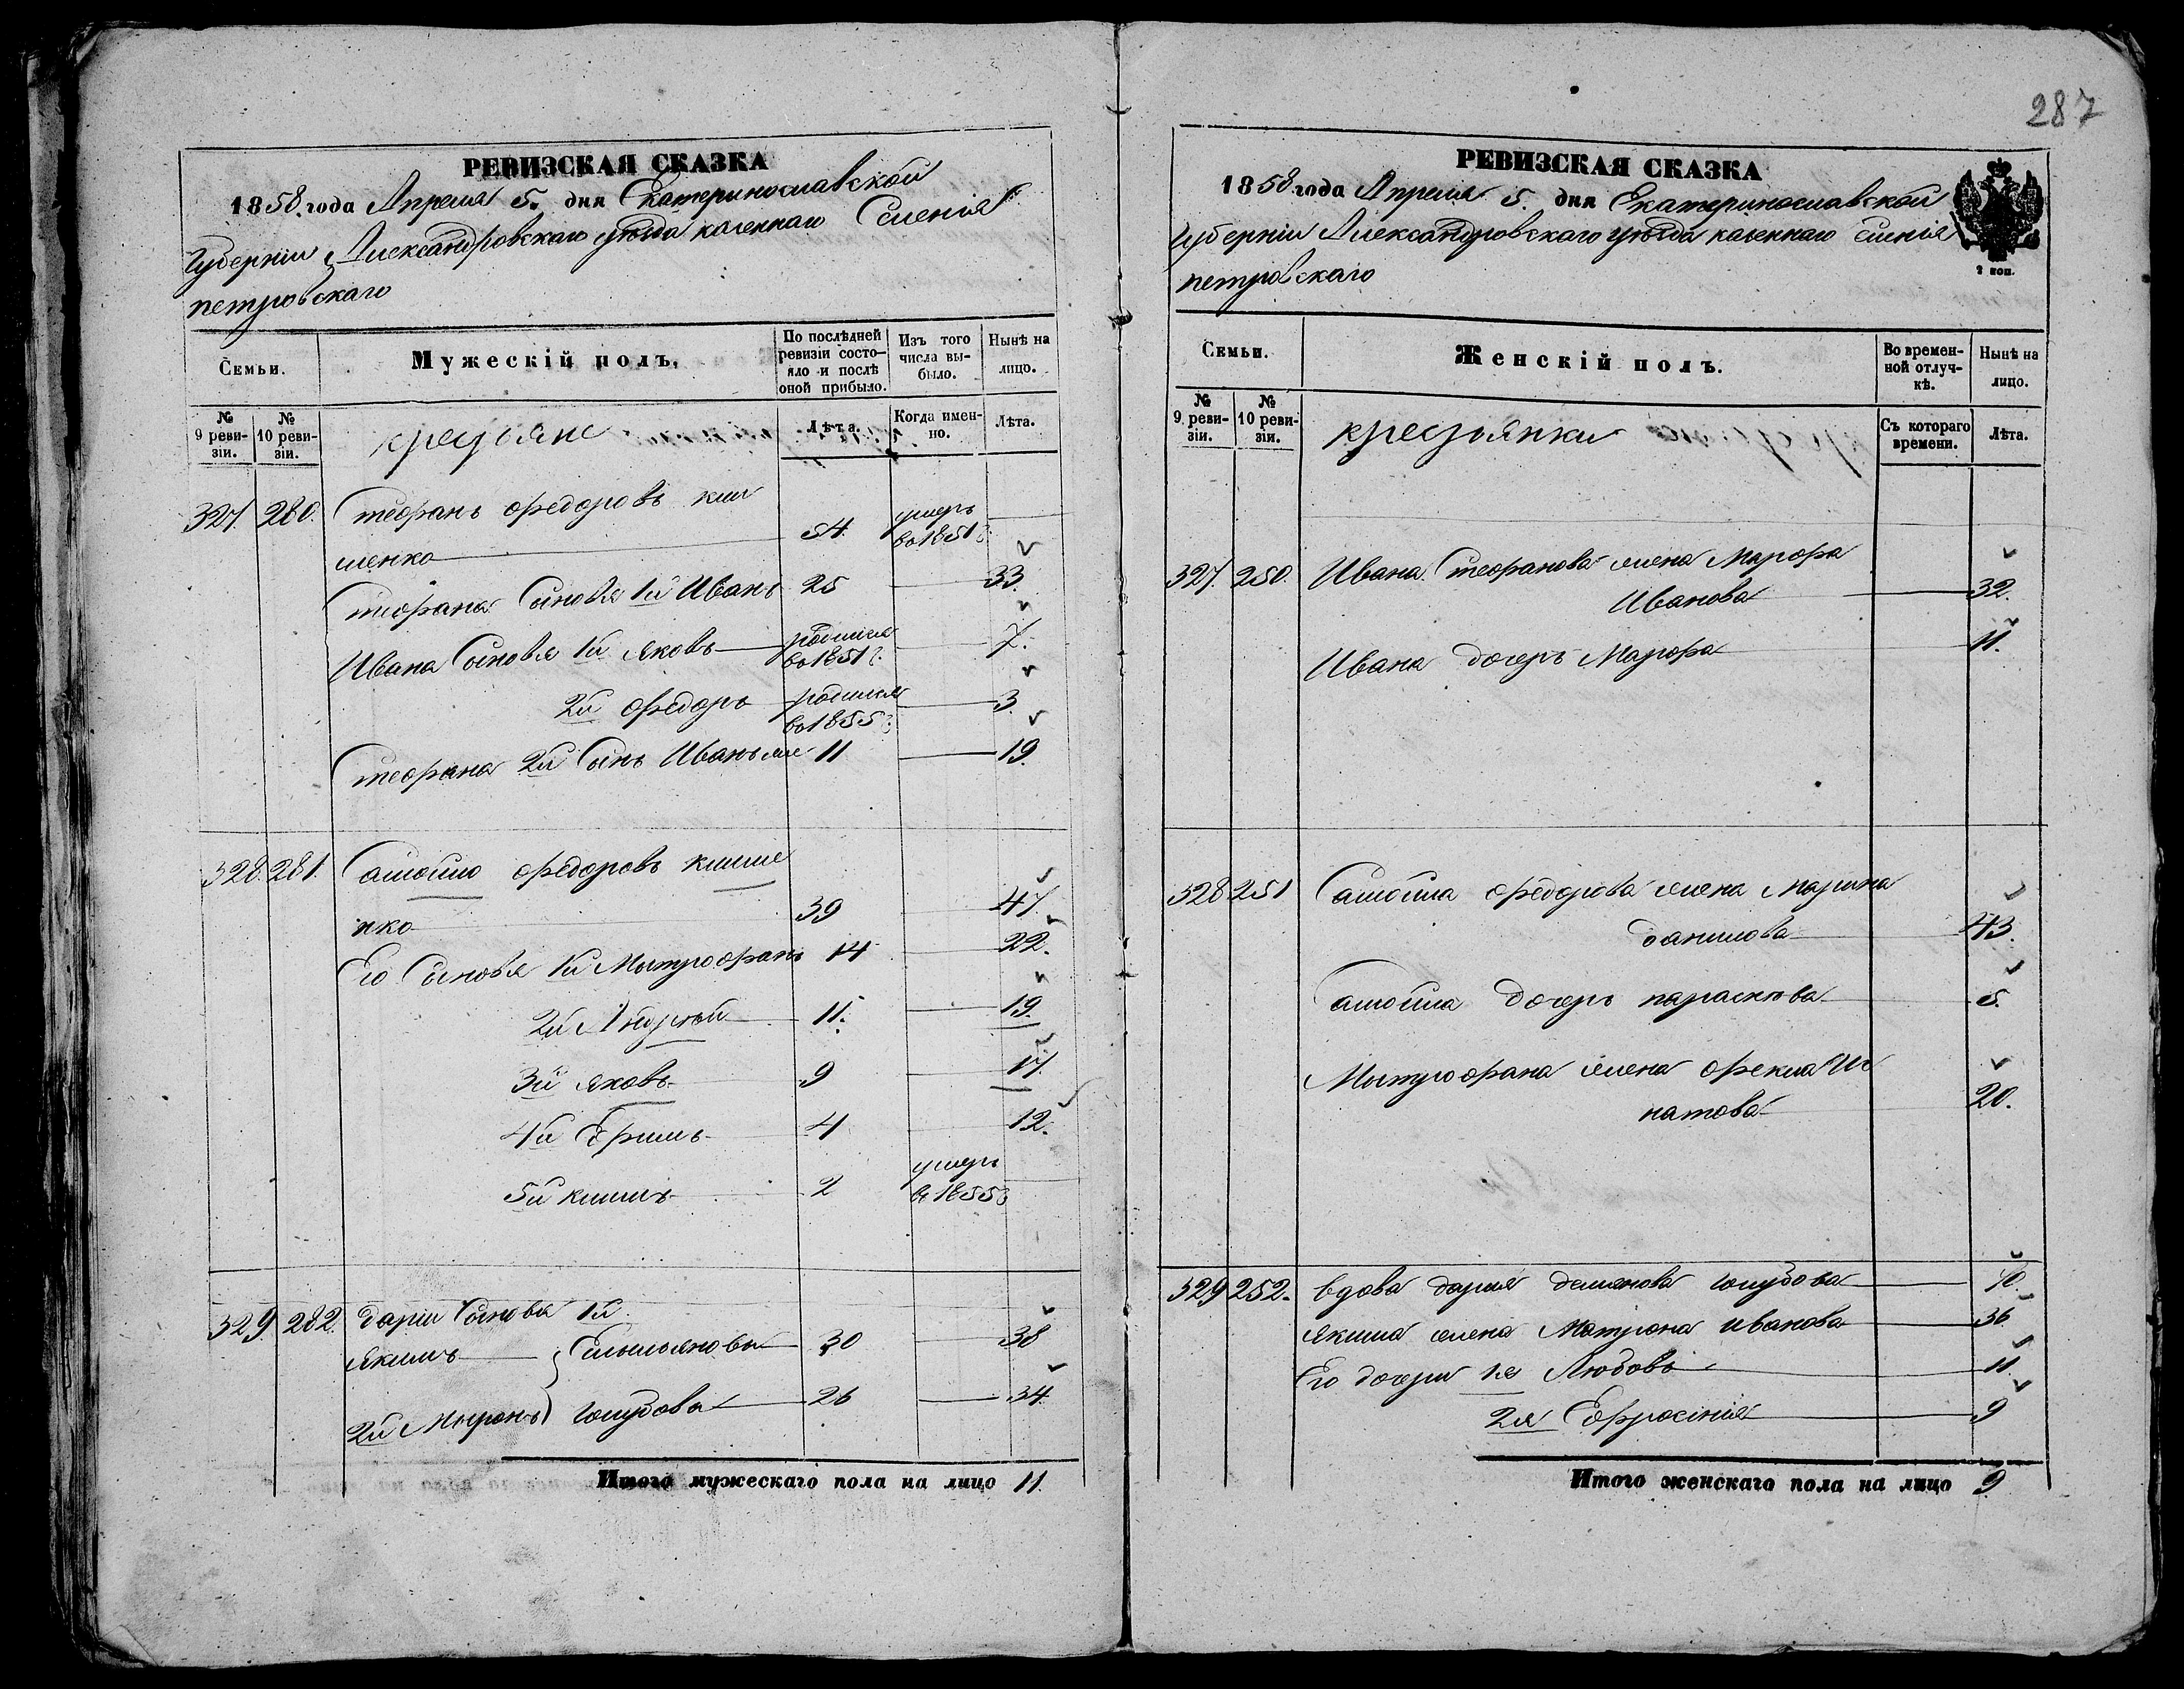 287
РЕВИЗСКАЯ СКАЗКА
1858. года Апреля 5. дня Екатеринославской
Губернии Александровскаго уѣзда казеннаго Селенія
петровскаго
Семьи.
Мужескій полъ.
По послѣдней ревизіи состояло и послѣ оной прибыло.
Изъ того числа выбыло.
Нынѣ на лицо.
№ 9 ревизіи.
№ 10 ревизіи.
крестьяне
Лѣта.
Когда именно.
Лѣта.
327. 280. Стефанъ Федоровъ Кли
менко 54. умеръ во 1851 г.
Стефана Сыновья 1й Иванъ 25 33.
Ивана Сыновья 1й Яковъ родился во 1851 г. 7.
2й Федоръ родился во 1855 г. 3.
Стефана 2й Сынъ Иванъ же 11 19.
328. 281. Самойло Федоровъ Климе
нко 39 47.
Его Сыновья 1й Мытрофанъ 14 22.
2й Андрей 11. 19.
3й Яковъ 9 17.
4й Ефимъ 4 12.
5й Климъ 2 умеръ въ 1855 г.
329 282. Дарьи Сыновья 1й
Якимъ Емельяновы 30 38
2й Миронъ Голубовы 26 34.
Итого мужескаго пола на лицо 11.
РЕВИЗСКАЯ СКАЗКА
1858 года Апреля 5. дня Екатеринославской
Губерніи Александровскаго уѣзда казеннаго Селенія
петровскаго
2 коп.
Семьи.
Женскій полъ.
Во временной отлучкѣ.
Нынѣ на лицо.
№ 9 ревизіи.
№ 10 ревизіи.
крестьянки
Съ котораго времени.
Лѣта.
327. 250. Ивана Стефанова жена Марфа
Иванова 32.
Ивана дочерь Марфа 11.
328 251 Самойла Федорова жена Марина
Данилова 43.
Самойла дочерь параскева 5.
Мытрофана жена Фекла Иг
натова 20.
329 252. вдова дарья демянова голубова 70.
Якима жена Матрона Иванова 36
Его дочери 1я Любовь 11
2я Ефросінія 9
Итого женскаго пола на лицо 9